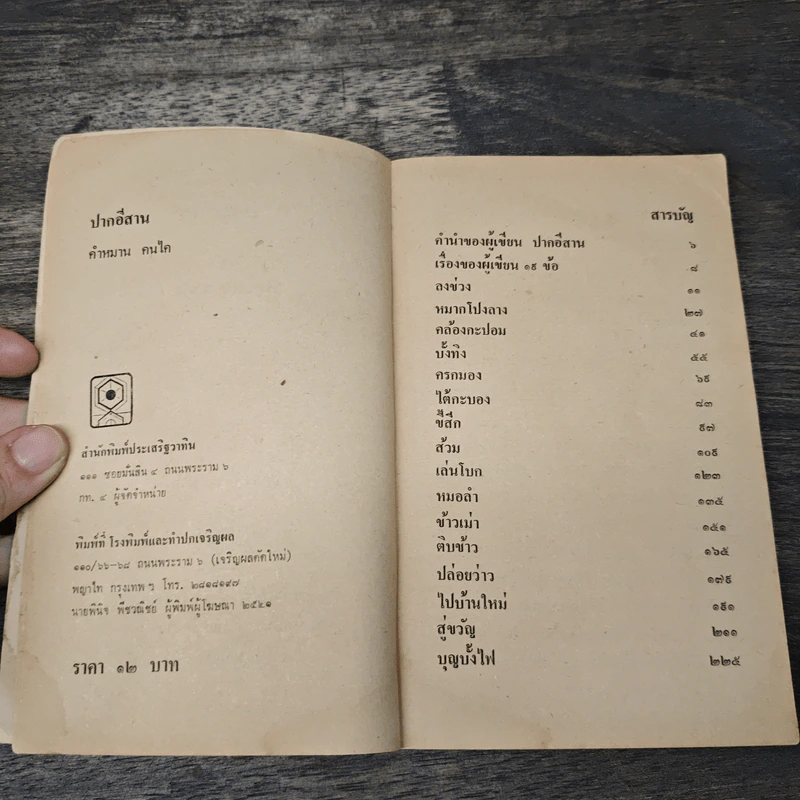 ปากอีสาน
คำหมาน คนไค
สำนักพิมพ์ประเสริฐวาทิน
๑๑๑ ซอยมั่นสิน ๔ ถนนพระราม ๖
กท. ๔ ผู้จัดจำหน่าย
พิมพ์ที่ โรงพิมพ์และทำปกเจริญผล
๑๑๐/๖๖-๖๘ ถนนพระราม ๖ (เจริญผลตัดใหม่)
พญาไท กรุงเทพฯ โทร. ๒๘๑๘๑๙๗
นายพินิจ พืชวณิชย์ ผู้พิมพ์ผู้โฆษณา ๒๕๒๑
ราคา ๑๒ บาท
สารบัญ
คำนำของผู้เขียน ปากอีสาน ๖
เรื่องของผู้เขียน ๑๙ ข้อ ๘
ลงช่วง ๑๑
หมากโปงลาง ๒๗
คล้องกะปอม ๔๑
บั้งทิง ๕๕
ครกมอง ๖๙
ไต้กะบอง ๘๓
ขี้สึก ๙๗
ส้วม ๑๐๙
เล่นโบก ๑๒๓
หมอลำ ๑๓๕
ข้าวเม่า ๑๕๑
ติบข้าว ๑๖๕
ปล่อยว่าว ๑๗๙
ไปบ้านใหม่ ๑๙๑
สู่ขวัญ ๒๑๑
บุญบั้งไฟ ๒๒๕